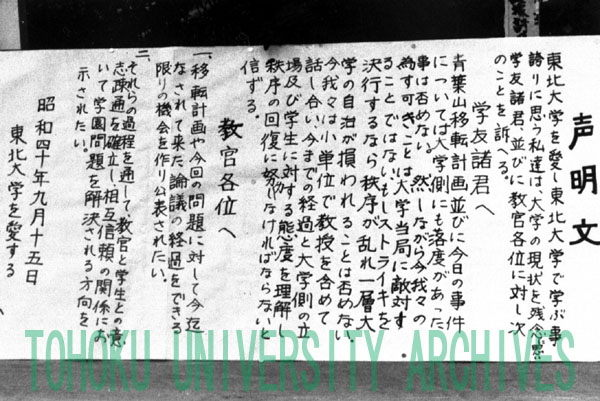 声明文
東北大学を愛し東北大学で学ぶ事
誇りに思う私達は、大学の現状を残念に思
学友諸君、並びに教官各位に対し次
のことを訴へる。
学友諸君へ
青葉山移転計画並びに今日の事件
については大学側にも落度があった
事は否めない。然しながら今我々の
為す可きことは大学当局に敵対す
ることではないもしストライキを
決行するなら秩序が乱れ一層大
学の自治が損われることは否めない、
今我々は小単位で教授を含めて
話し合い今までの経過と大学側の立
場及び学生に対する態度を理解し
秩序の回復に努めなければならないと
信ずる。
教官各位へ
一、移転計画や今回の問題に対して今迄
なされて来た論議の経過をできる
限りの機会を作り公表されたい。
二、それらの過程を通して、教官と学生との意
志疎通を確立し、相互信頼の関係にお
いて学園問題を解決される方向を
示されたい。
昭和四十年九月十五日
東北大学を愛する
TOHOKU UNIVERSITY ARCHIVES